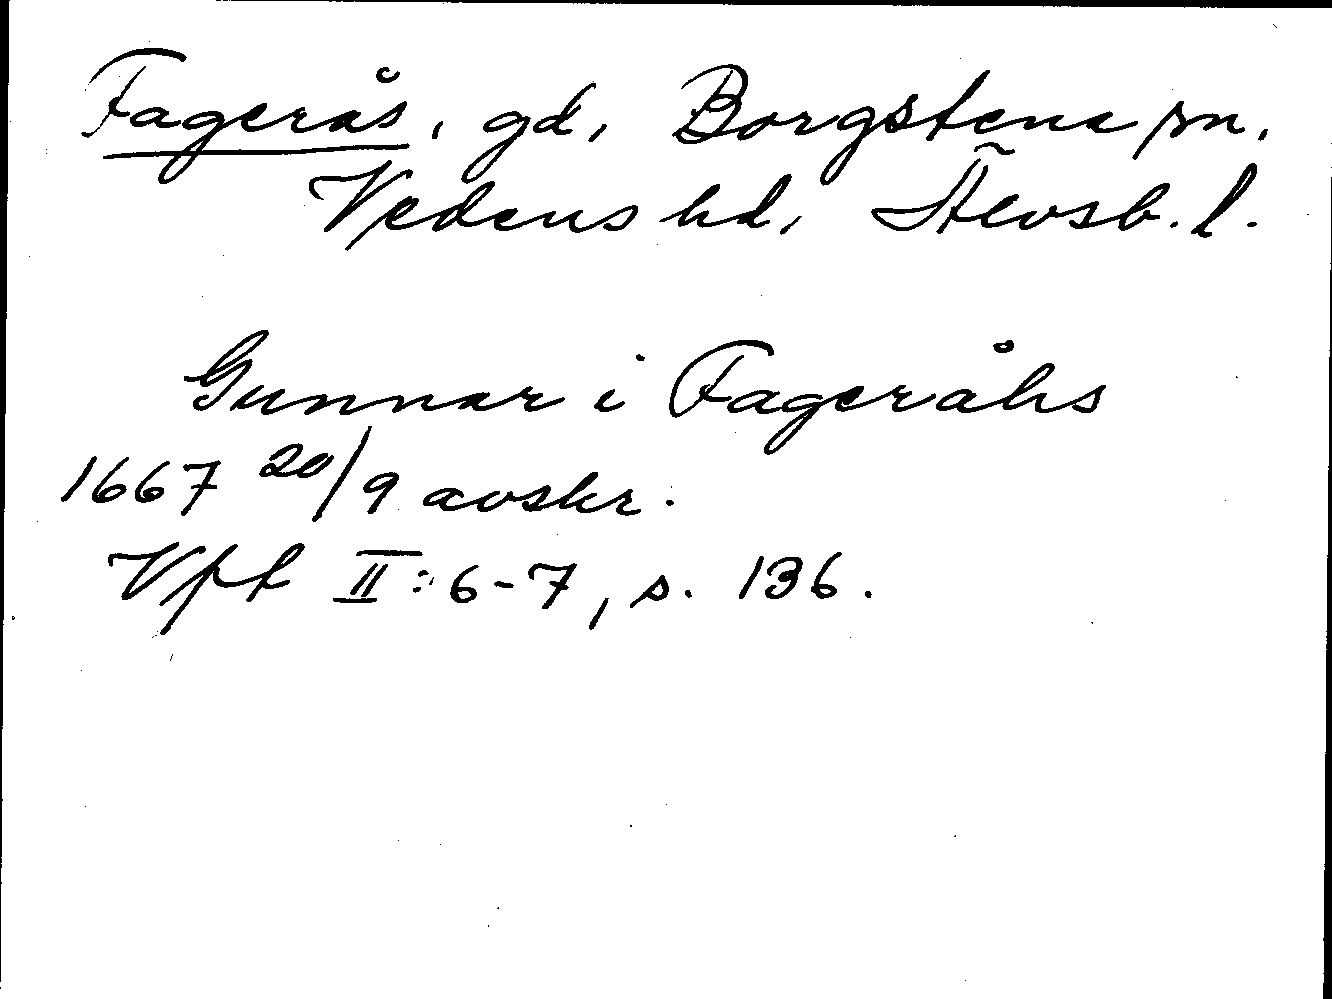 Fagerås, gd, Borgstena sn,
Vedens hd, Älvsb. l.
Gunnar i Fageråhs
1667 20/9 avskr.
Vpf II:6-7, s. 136.